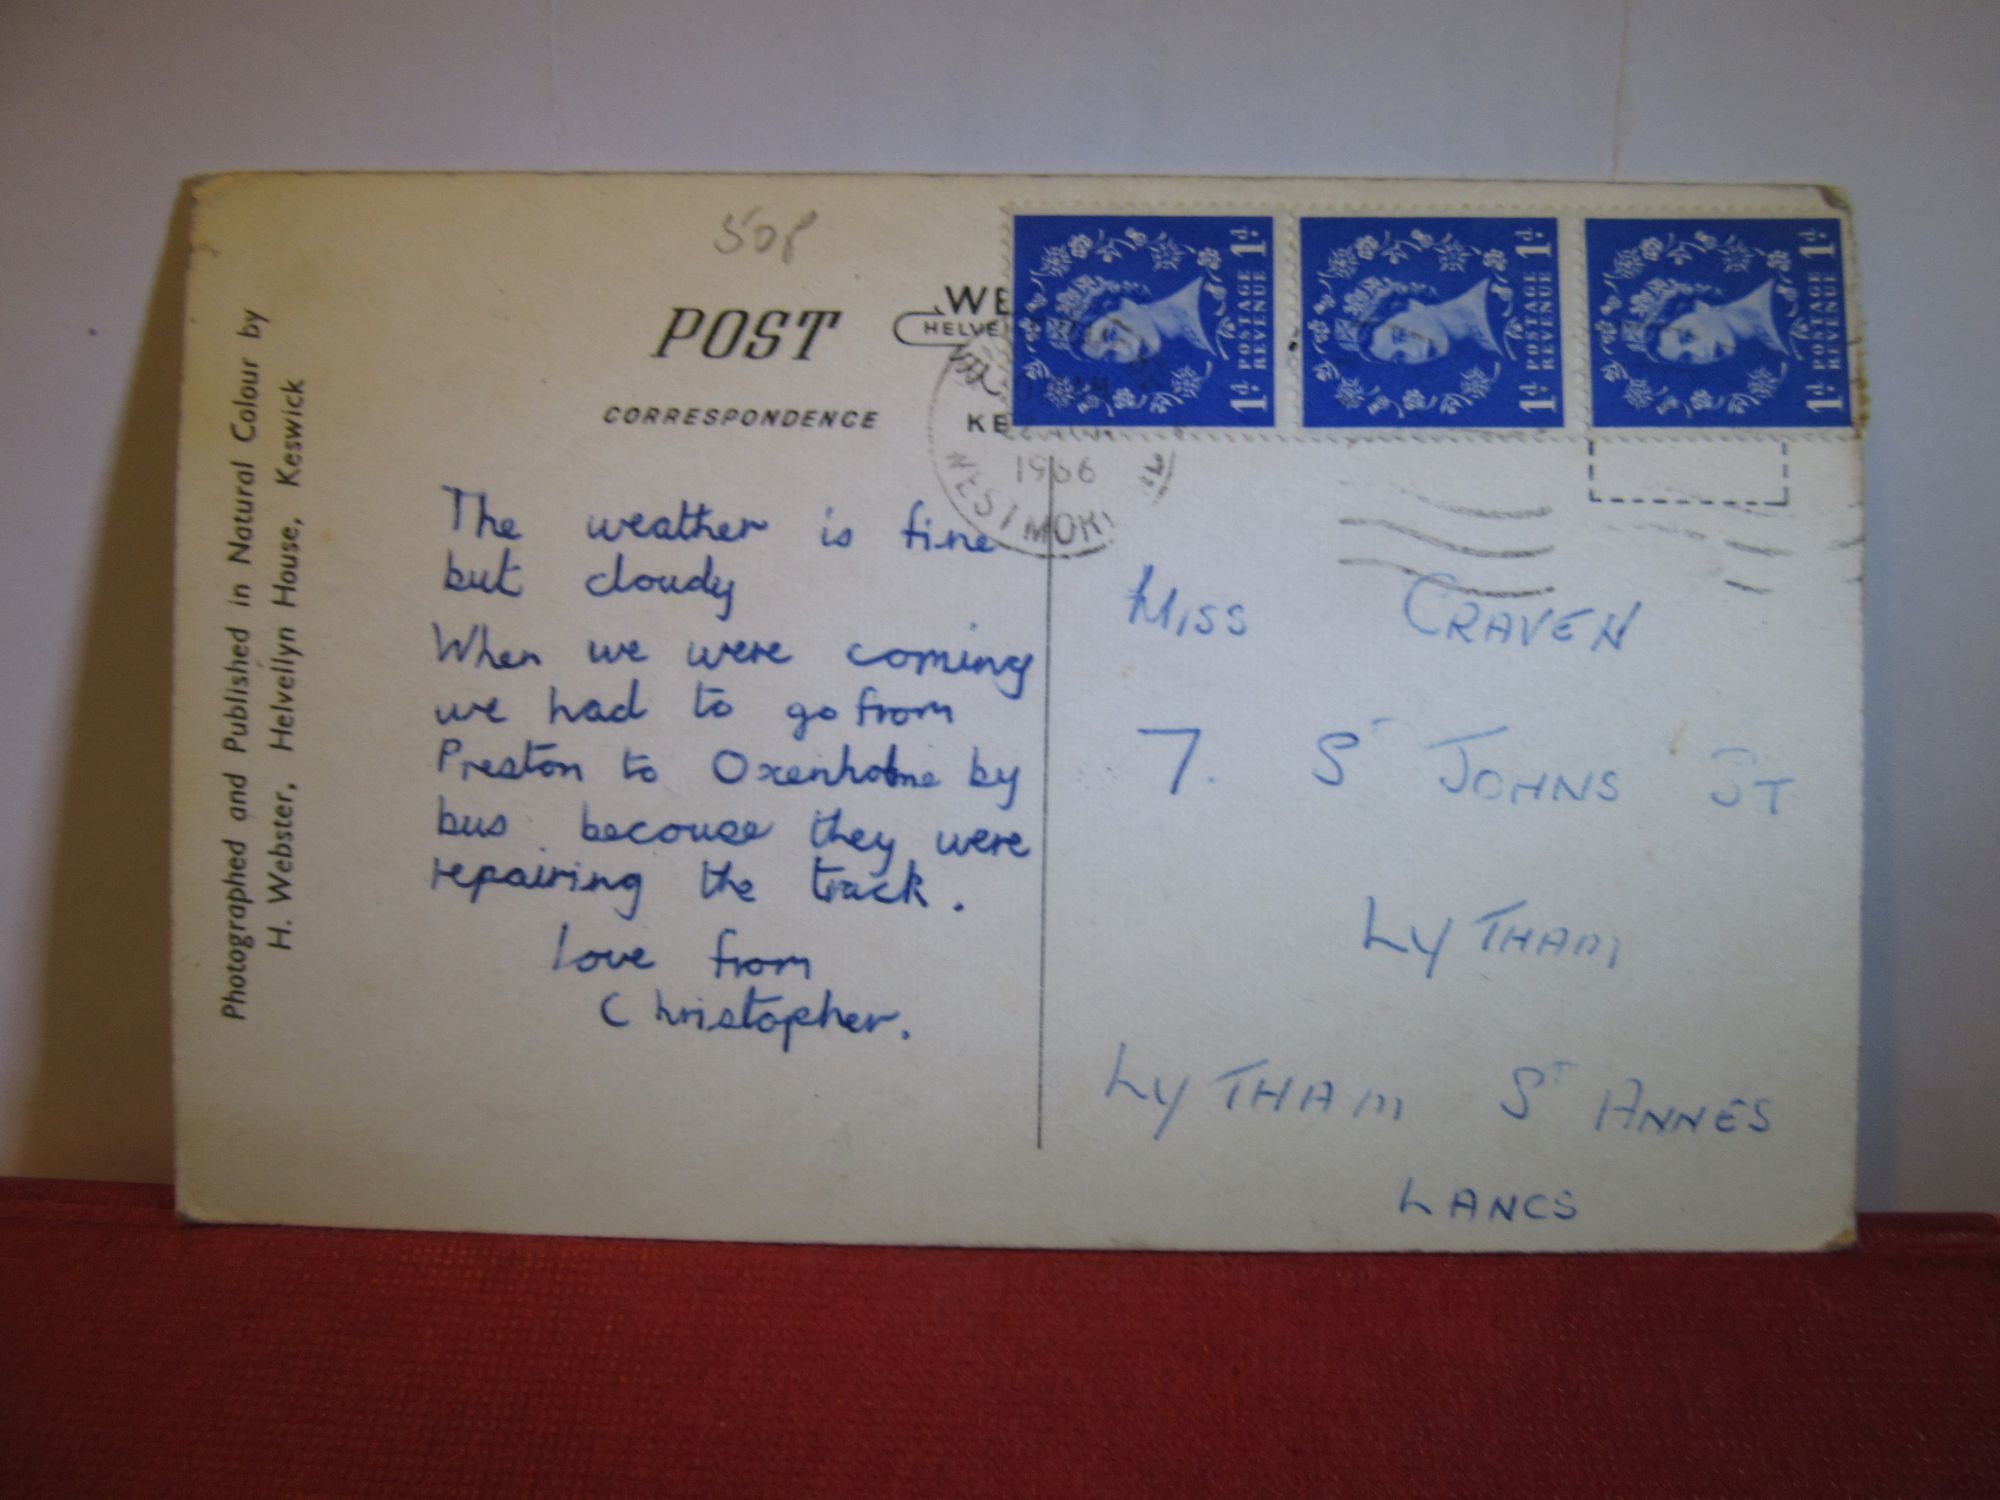 50p
POST
CORRESPONDENCE
WE
HELVE
KE
1d POSTAGE 1d
REVENUE
1d POSTAGE 1d
REVENUE
1d POSTAGE 1d
REVENUE
1966
WESTMOR
Photographed and Published in Natural Colour by
H. Webster, Helvellyn House, Keswick
The weather is fine
but cloudy
When we were coming
we had to go from
Preston to Oxenholme by
bus becouse they were
repairing the track.
love from
Christopher.
MISS CRAVEN
7. ST JOHNS ST
LYTHAM
LYTHAM ST ANNES
LANCS